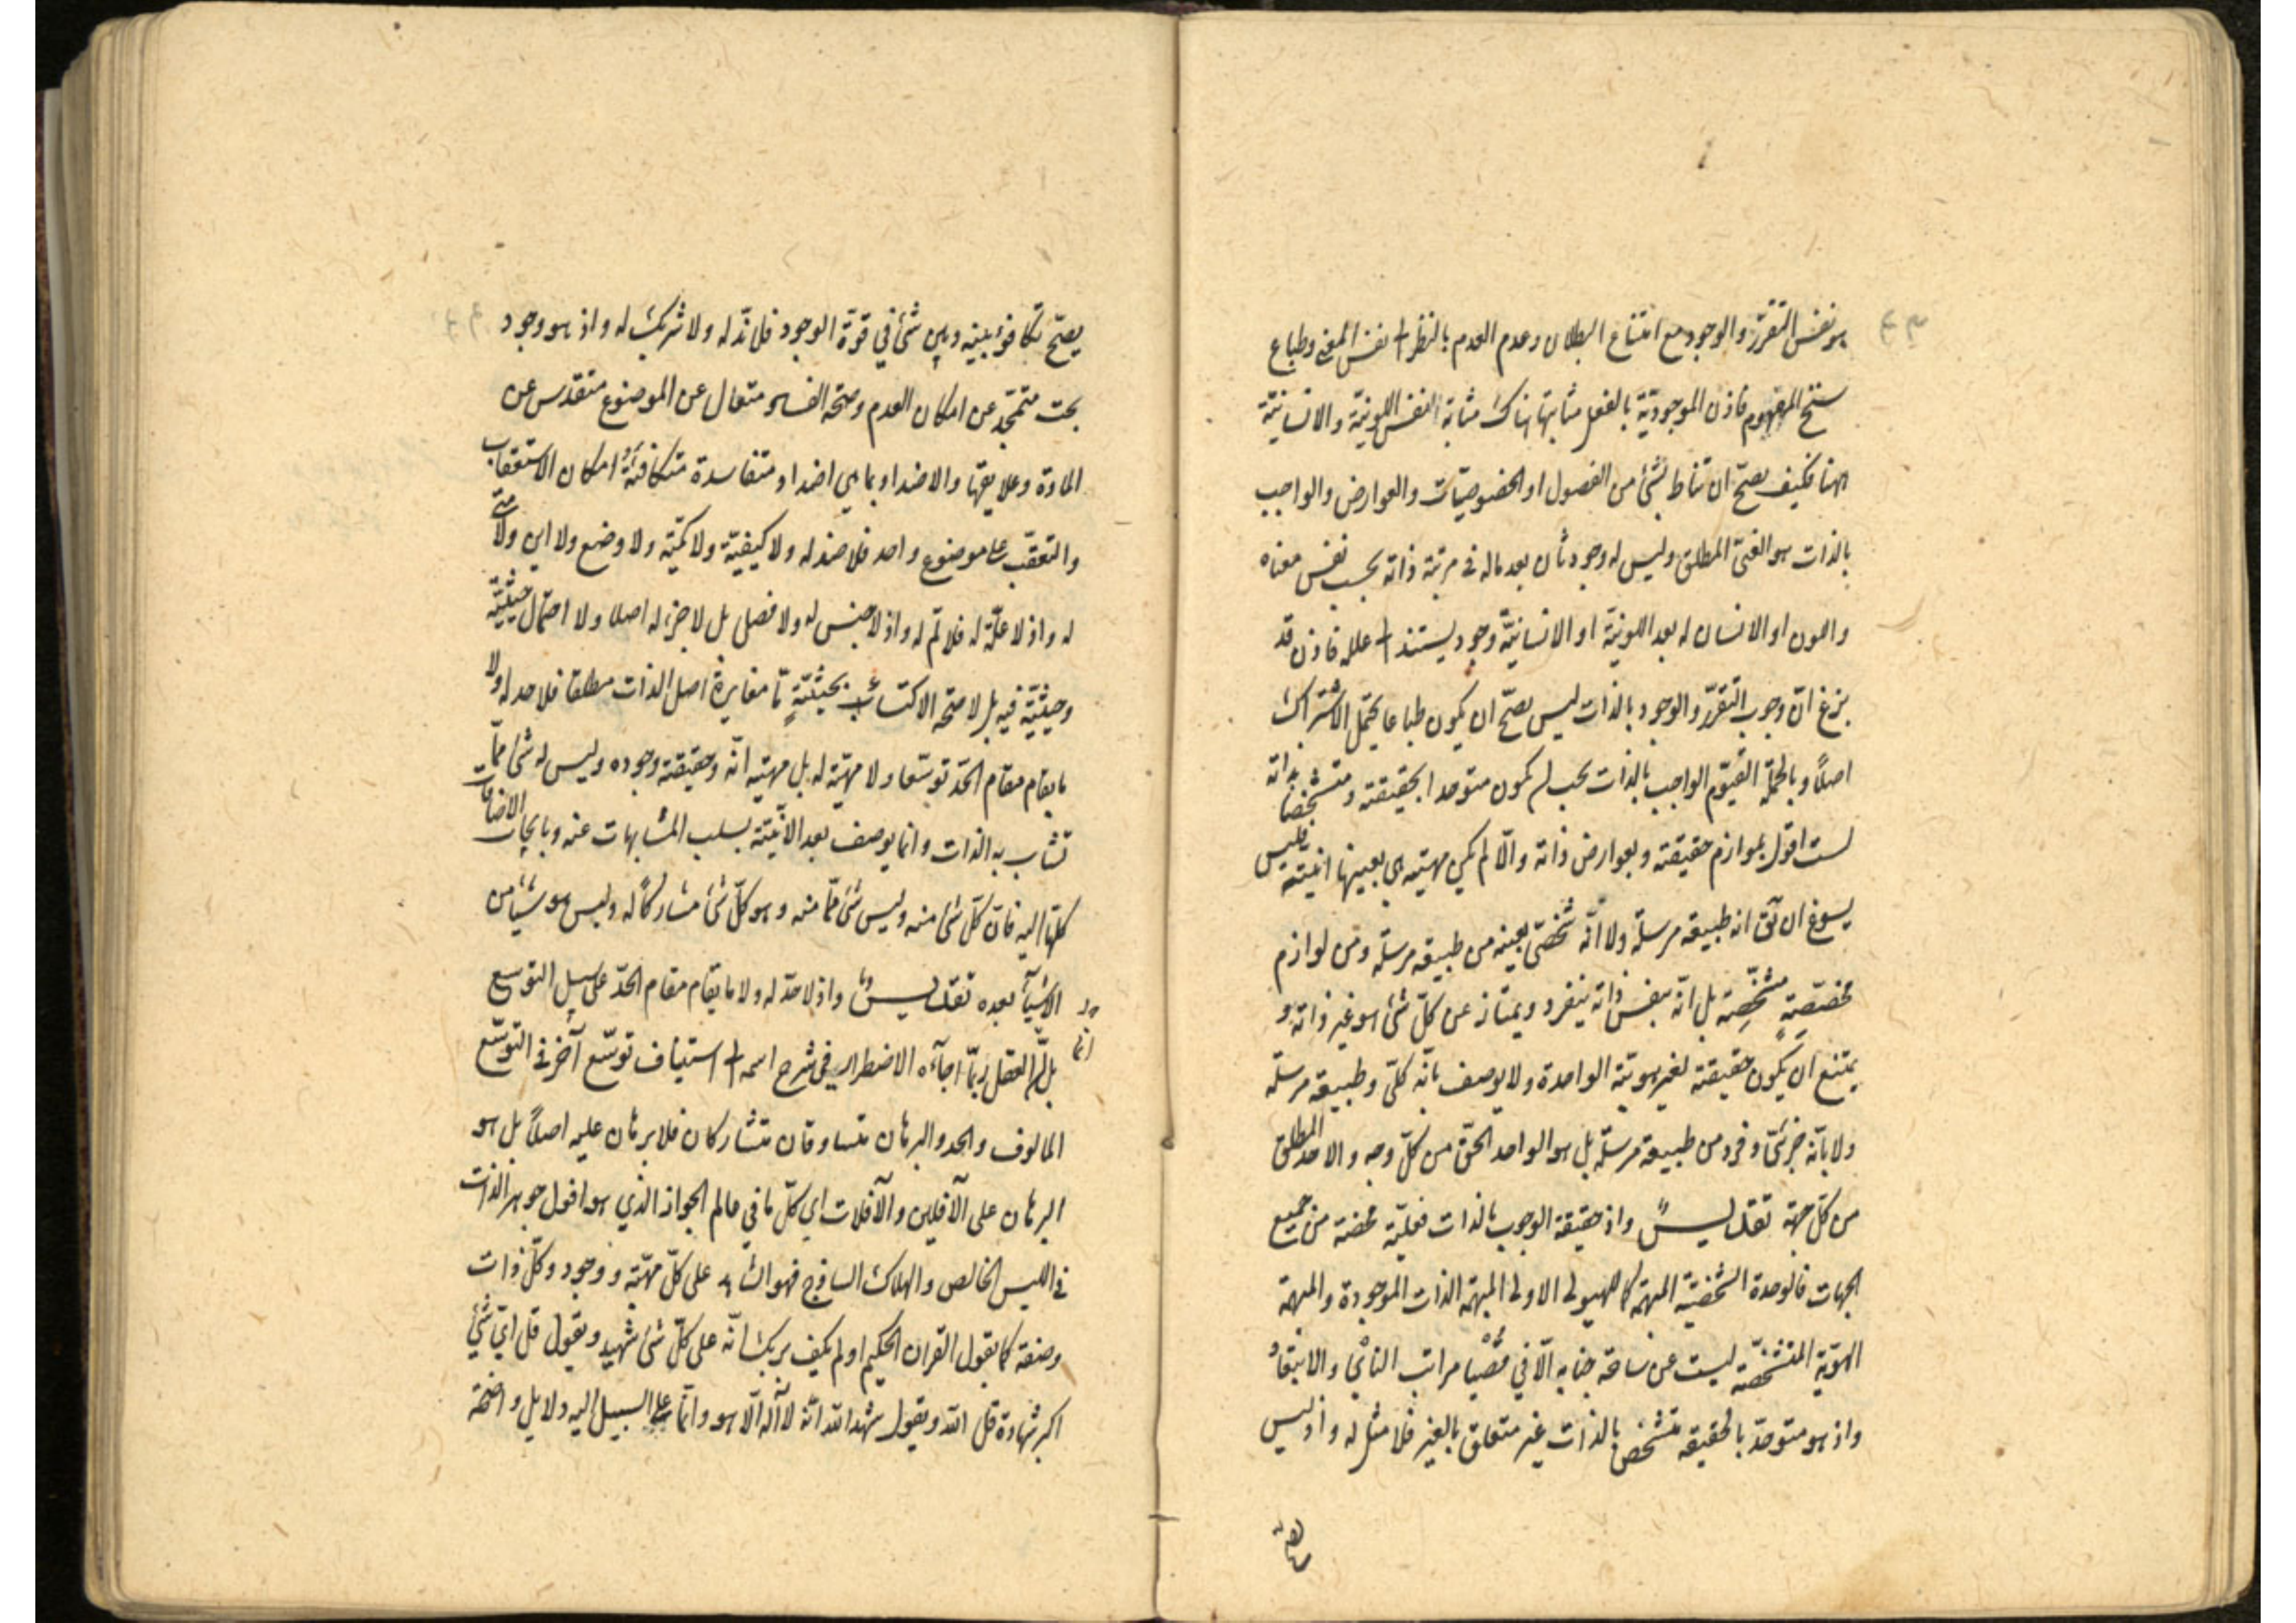 هو نفس التقرّر والوجود مع امتناع البطلان وعدم العدم بالنظر الى نفس المعنى وطباع
سنخ المفهوم فاذن الموجوديّة بالفعل مثابتها هناك مثابة النفس اللونيّة والانسانيّة
ههنا فكيف يصحّ ان تناط بشئ من الفصول او الخصوصيّات والعوارض والواجب
بالذات هو الغنىّ المطلق وليس له وجود ثان بعد ماله فى مرتبة ذاته بحسب نفس معناه
واللون او الانسان له بعد اللونيّة او الانسانيّة وجود يستند الى علله فاذن قد
بزغ انّ وجوب التقرّر والوجود بالذات ليس يصحّ ان يكون طباعا يحتمل الاشتراك
اصلاً وبالجملة القيّوم الواجب بالذات يجب ان يكون متوحدا بحقيقته ومتشخّصا بذاته
لست اقول بلوازم حقيقته وبعوارض ذاته والّا لم يكن مهيته هى بعينها انيّته فليس
يسوغ ان يق انه طبيعة مرسلة ولا انّه شخصىّ بعينه من طبيعة مرسلة ومن لوازم
مخصّصةٍ مشخّصِة بل انّه بنفس ذاته ينفرد ويمتاز عن كلّ شئ هو غير ذاته و
يمتنع ان يكون حقيقته لغير هويّته الواحدة ولا يوصف بانّه كلّى وطبيعة مرسلة
ولا بانّه جزئىّ وفرد من طبيعة مرسلة بل هو الواحد الحقّ من كلّ وجه والاحد المطلق
من كلّ جهة تقديسٌ واذ حقيقة الوجوب بالذات فعليّة محضة من جميع
الجهات فالوحدة الشخصيّة المبهمة كما للهيولى الاولى المبهمة الذات الموجودة والمبهمة
الهويّة المتشخّصة ليست عن ساحة جنابه الّا في قُصْيا مراتب النائي والابتعادُ
واذ هو متوحّد بالحقيقة متشخّص بالذات غير متعلق بالغير فلا مثل له واذ ليس
يصحّ تكافؤ بينه وبين شئ في قوّة الوجود فلا ندّ له ولا شريك له واذ هو وجود
بحت متمجّد عن امكان العدم وصحّة الفساد متعال عن الموضوع متقدس عن
المادة وعلايقها والاضداد بما هي اضداد متفاسدة متكافئة و امكان الاستعقاب
والتعقّب على موضوع واحد فلا ضد له ولا كيفيّة ولا كمّية ولا وضع ولا اين ولا متى
له واذ لا علّة له فلا لمّ له واذ لا جنس له ولا فصل بل لا جزء له اصلا ولا احتمال حيثيّة
وحيثيّة فيه بل لا صحّة الاكتساب بحيثيّةٍ مّا مغايرة اصل الذات مطلقا فلا حد له ولا
ما يقام مقام الحدّ توسّعا ولا مهيّة له بل مهيته انّه وحقيقته وجوده وليس له شئ ممّا
تشاب به الذات وانما يوصف بعد الانّيّة بسلب المشابهات عنه وبايجاب الاضافات
كلّها اليه فانّ كلّ شئ منه وليس شئ ممّا منه وهو كلّ شئ مشاركًا له وليس هو شيئا من
الاشيآء بعده تقديسٌ واذ لا حدّ له ولا ما يقام مقام الحدّ على سبيل التوسع
بل العقل ربّما اجآءه الاضطرار في شرح اسمه الى استيناف توسّع آخر فى التوسّع
المالوف والحد والبرهان متساوقان متشاركان فلا برهان عليه اصلاً بل هو
البرهان على الآفلين والآفلات اي كلّ ما في عالم الجواز الذي هو افول جوهر الذات
فى الليس الخالص والهلاك الساذج فهو الشاهد على كلّ مهيّة ووجود وكلّ ذات
وصفة كما يقول القران الحكيم اولم يكف بربك انّه على كلّ شئ شهيد ويقول قل ايّ شئ
اكبر شهادة قل الله ويقول شهد الله انّه لا آله الّا هو وانّما على السبيل اليه دلايل واضحة